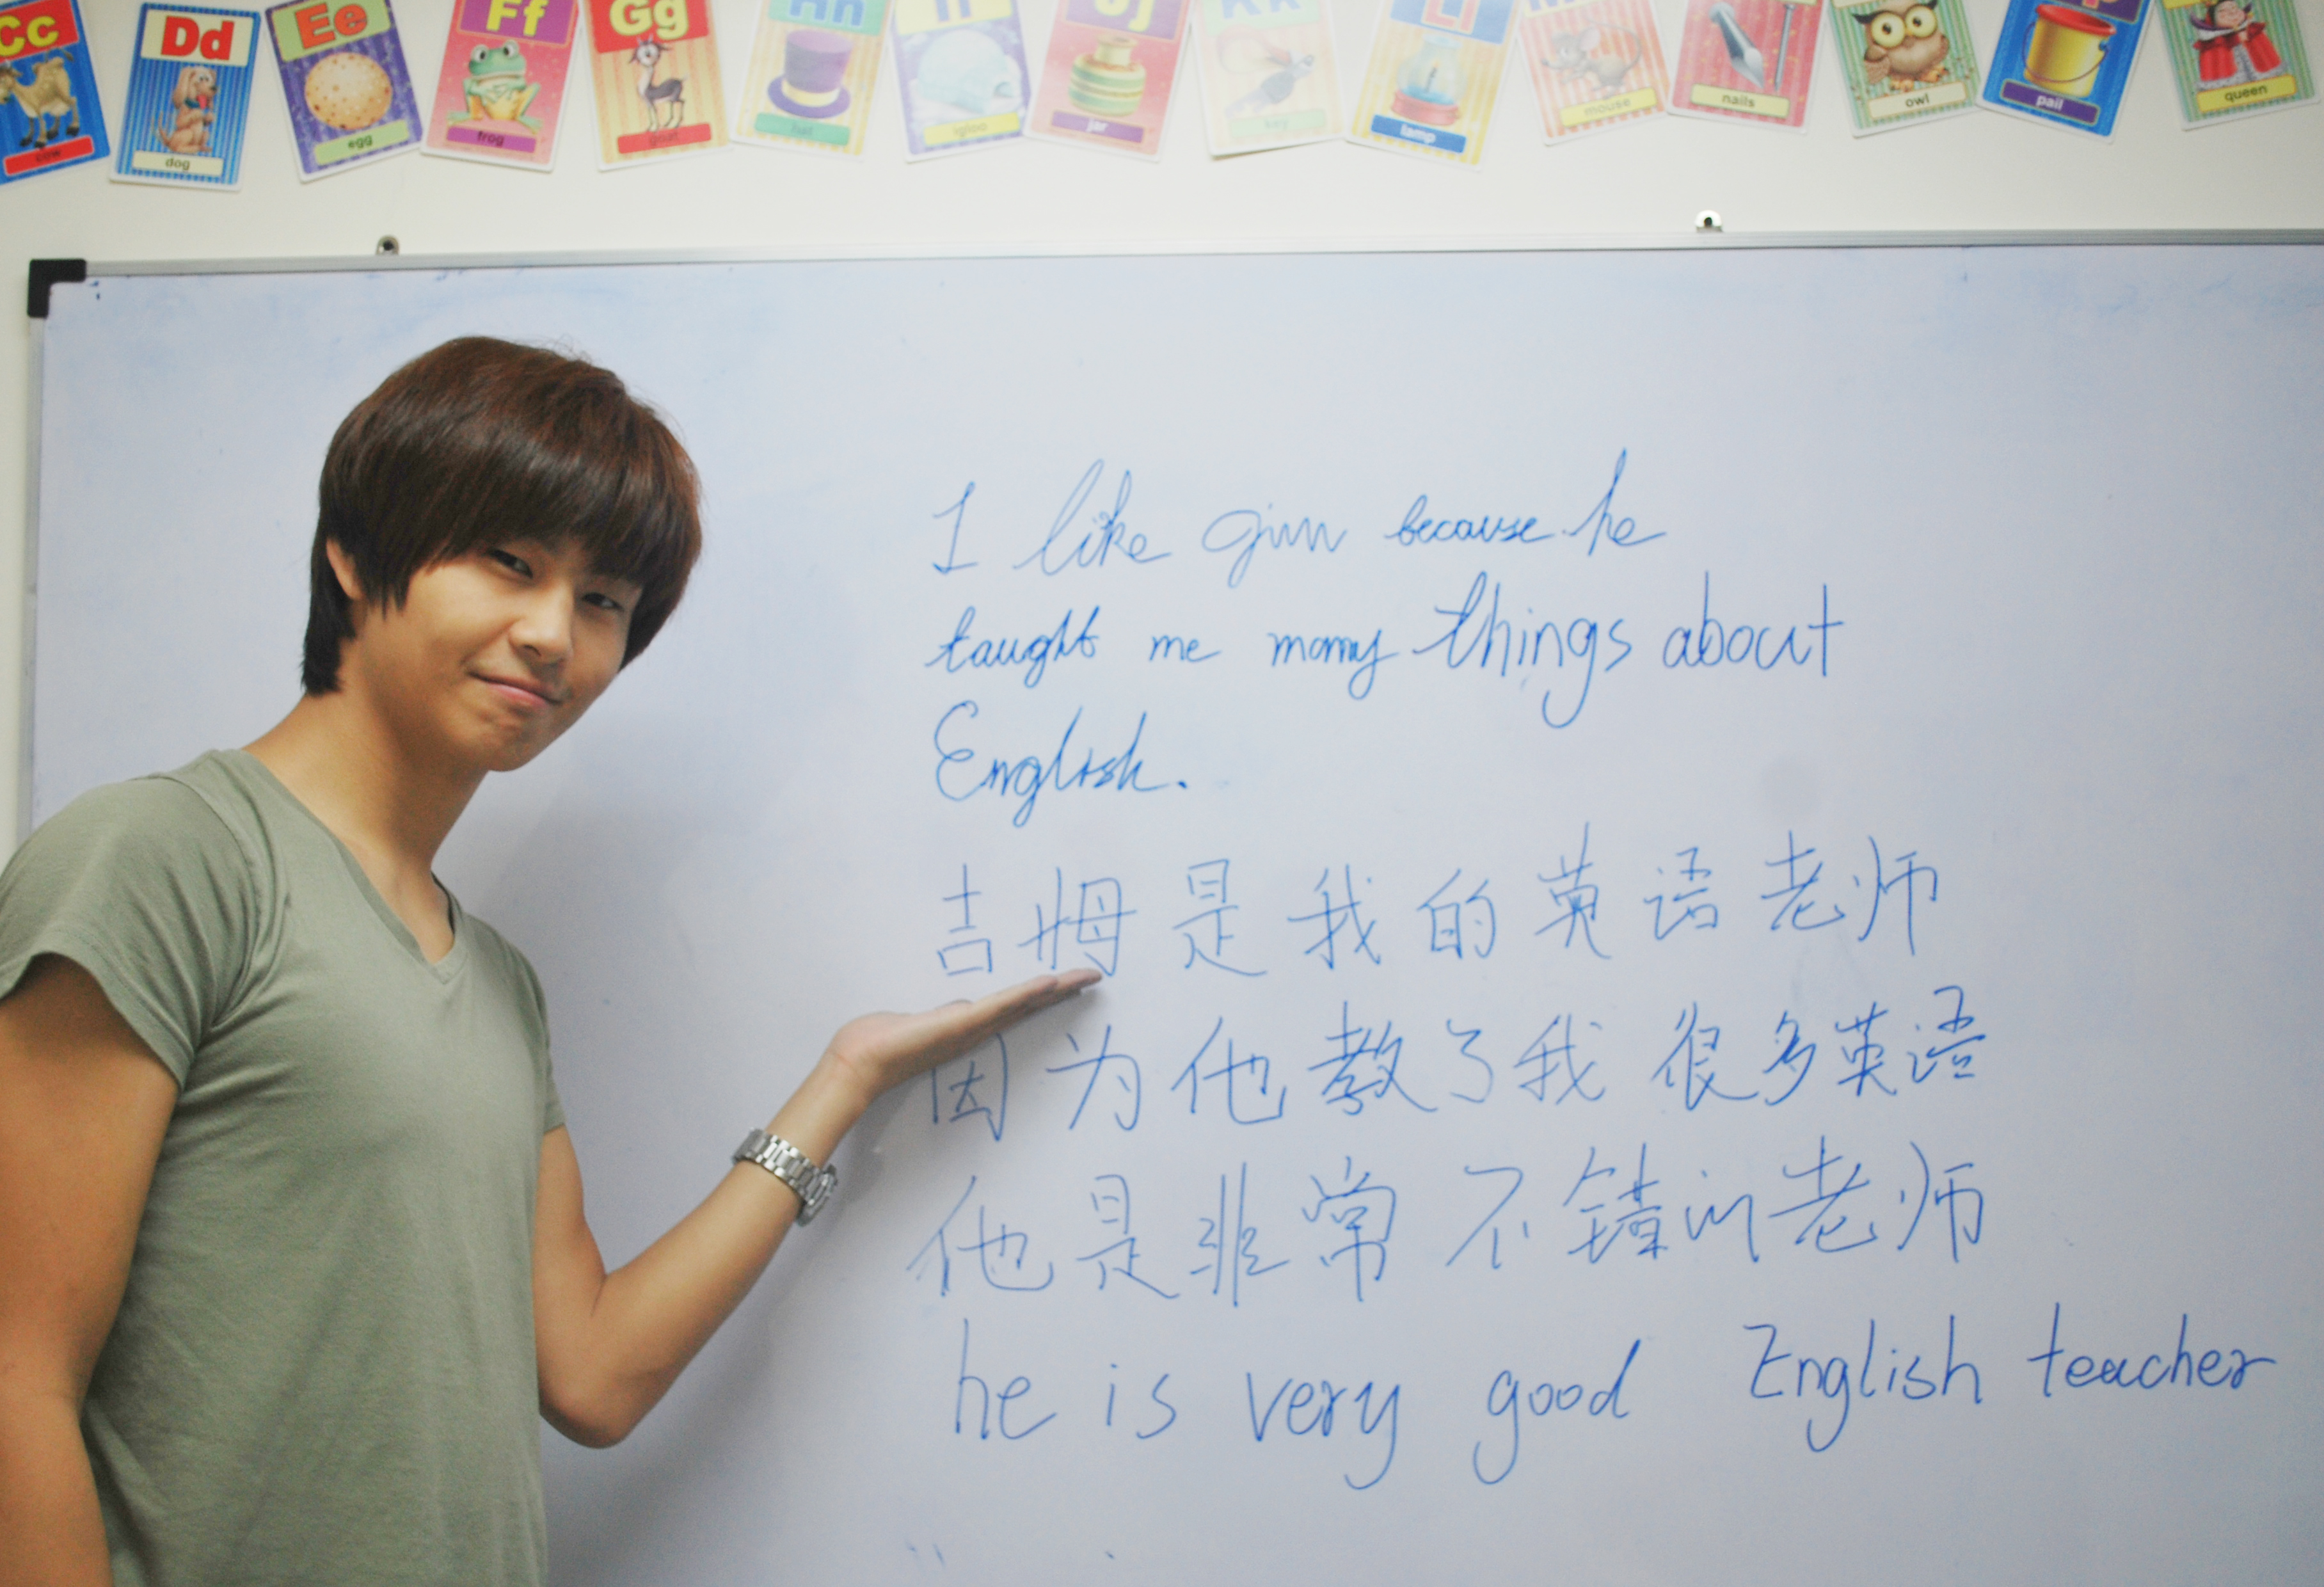 Cc Dd Ee Ff Gg Hh Jj
cow dog egg frog goat hat igloo jar key lamp mouse nails owl pail queen
I like gim because he
taught me many things about
English.
吉姆是我的英语老师
因为他教了我很多英语
他是非常不错的老师
he is very good English teacher